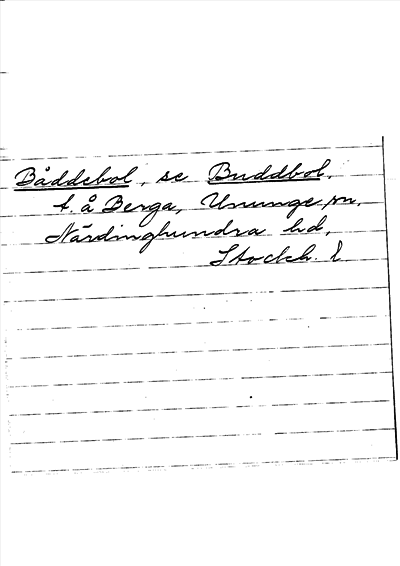 Båddebol, se Buddbol,
t. å Berga, Ununge sn,
Närdinghundra hd,
Stockh. l